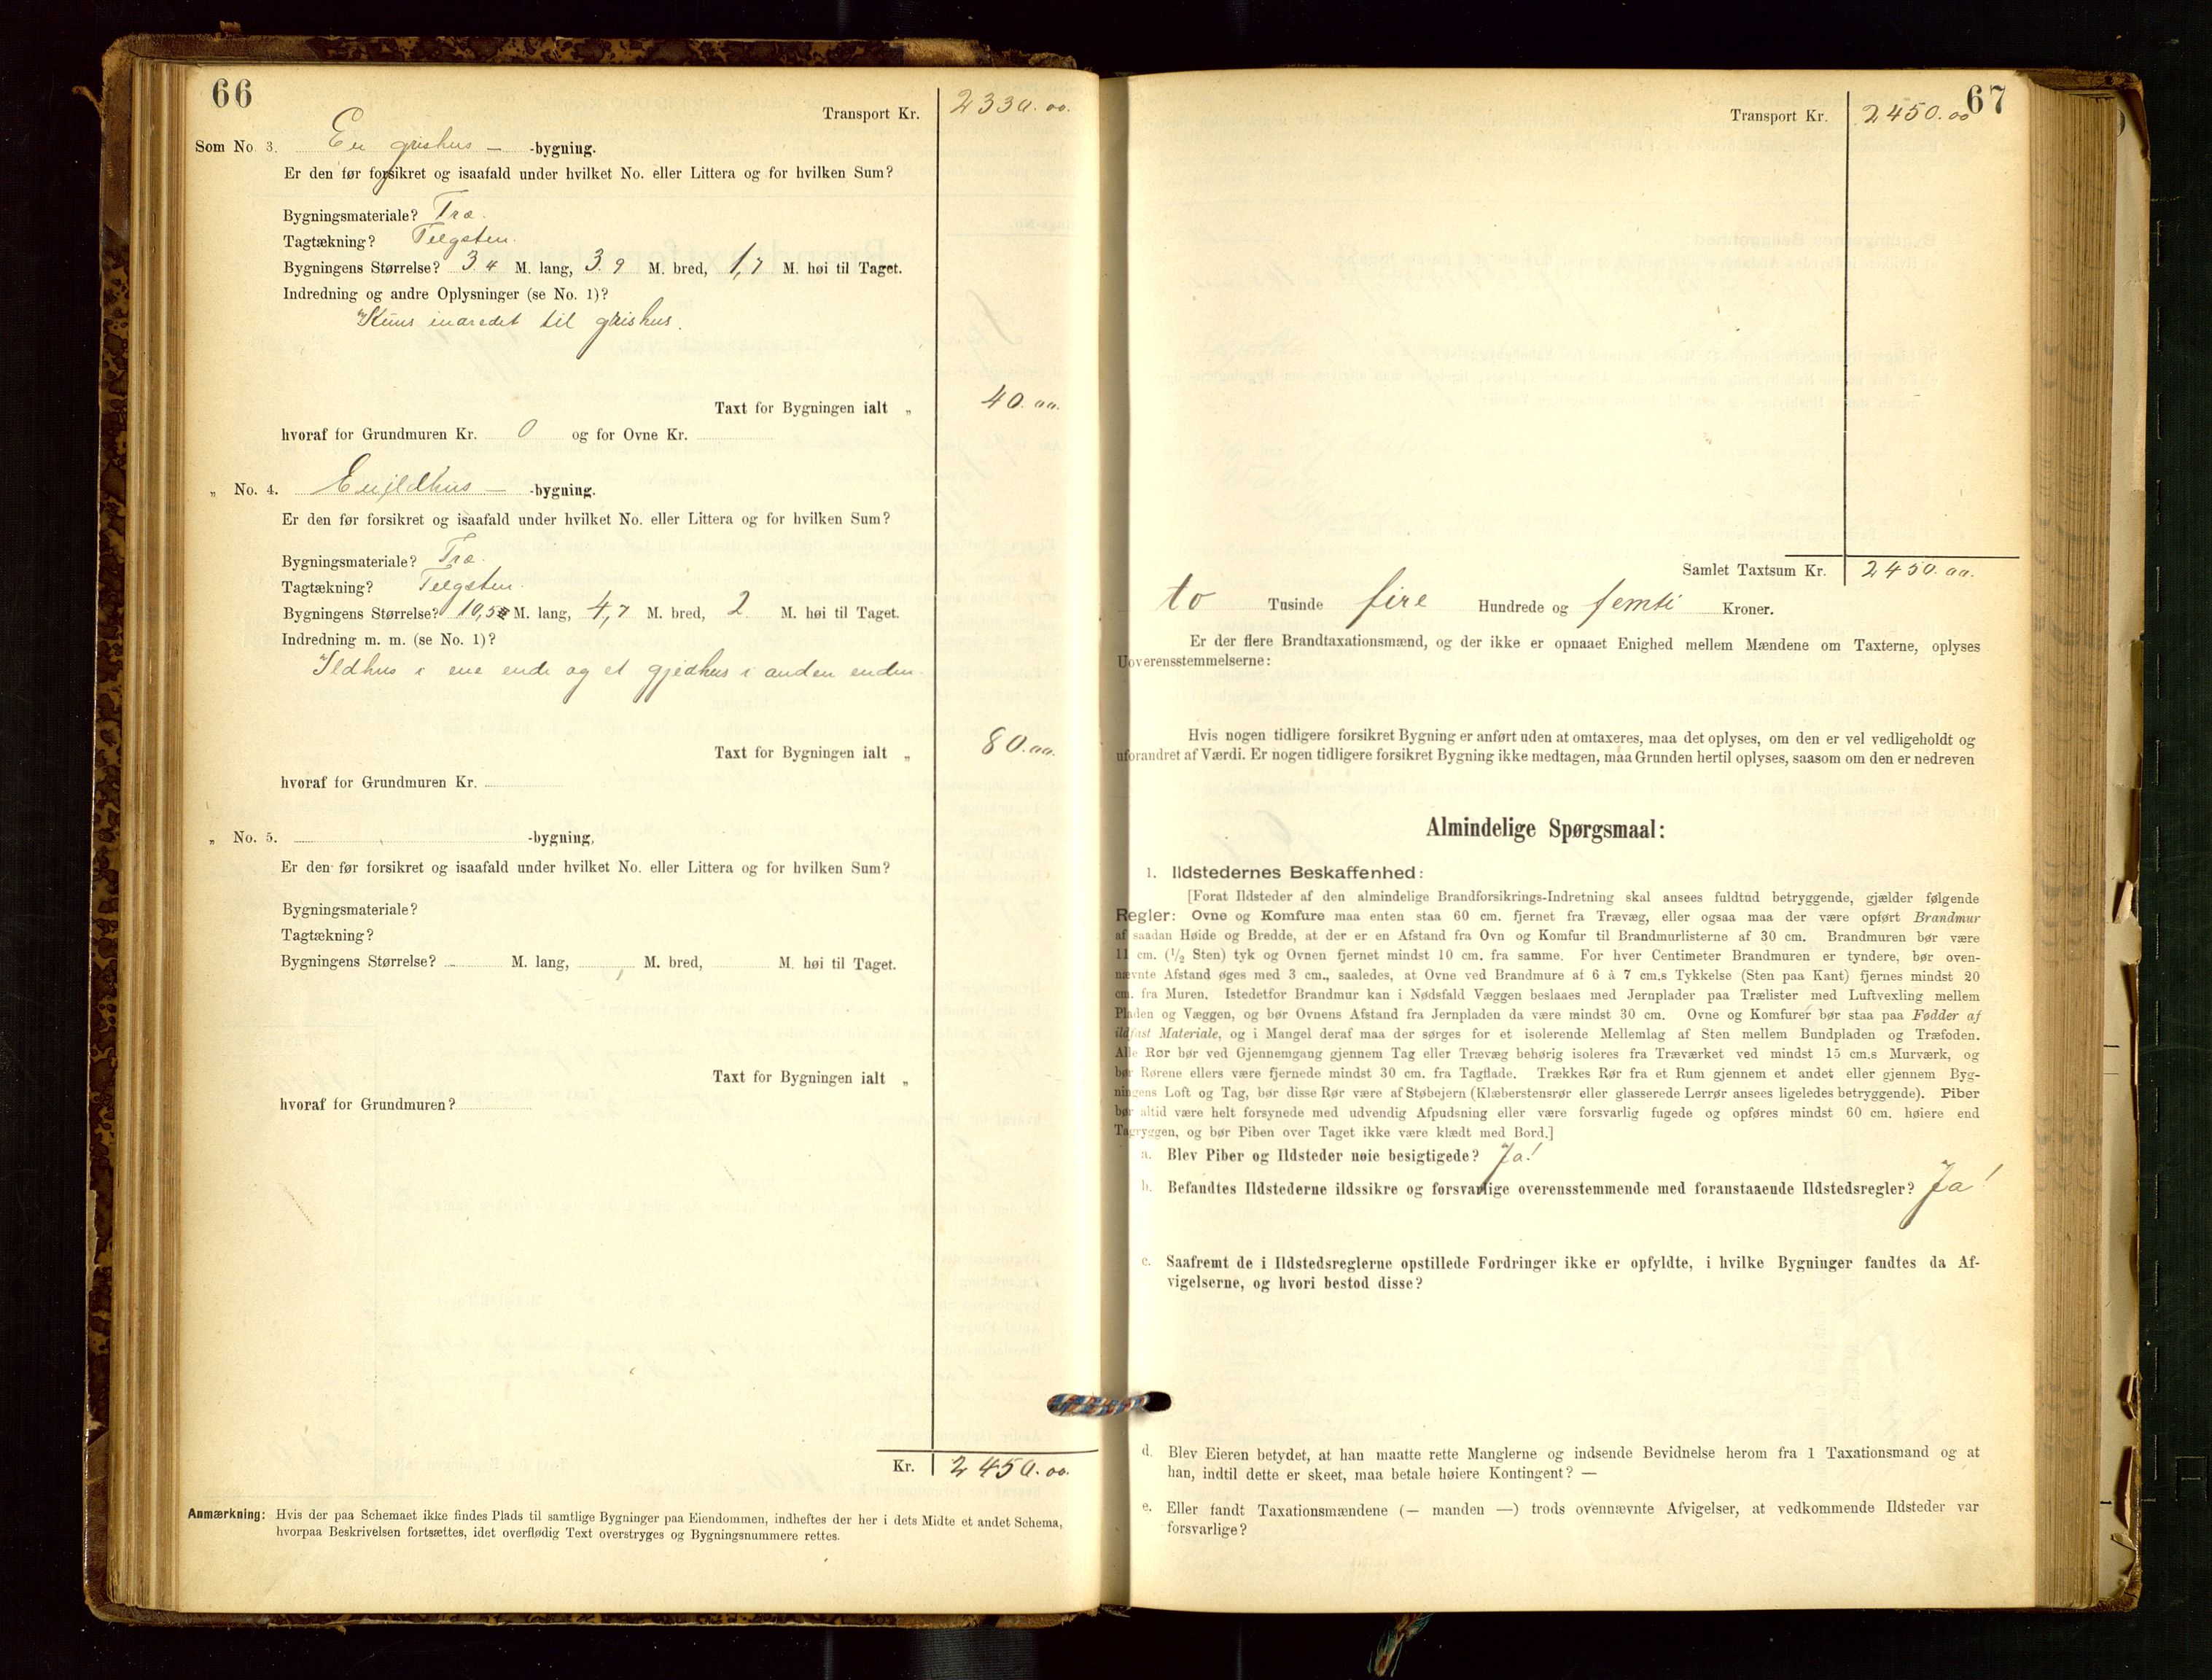 66
Transport Kr. 2330.00.
Som No. 3. En grishus — -bygning.
Er den før forsikret og isaafald under hvilket No. eller Littera og for hvilken Sum?
Bygningsmateriale? Træ.
Tagtækning? Teglsten.
Bygningens Størrelse? 3.4 M. lang, 3.9 M. bred, 1,7 M. høi til Taget.
Indredning og andre Oplysninger (se No. 1)?
Kuns inæredet til grishus.
Taxt for Bygningen ialt „ 40.00.
hvoraf for Grundmuren Kr. 0 og for Ovne Kr.
„ No. 4. En ildhus — -bygning.
Er den før forsikret og isaafald under hvilket No. eller Littera og for hvilken Sum?
Bygningsmateriale? Træ.
Tagtækning? Teglsten.
Bygningens Størrelse? 10,5 M. lang, 4,7 M. bred, 2 M. høi til Taget.
Indredning m. m. (se No. 1)?
Ildhus i ene ende og et gjedhus i anden enden.
Taxt for Bygningen ialt „ 80.00.
hvoraf for Grundmuren Kr.
„ No. 5. -bygning,
Er den før forsikret og isaafald under hvilket No. eller Littera og for hvilken Sum?
Bygningsmateriale?
Tagtækning?
Bygningens Størrelse? M. lang, M. bred, M. høi til Taget.
Taxt for Bygningen ialt „
hvoraf for Grundmuren?
Kr. 2450.00.
Anmærkning: Hvis der paa Schemaet ikke findes Plads til samtlige Bygninger paa Eiendommen, indheftes der her i dets Midte et andet Schema,
hvorpaa Beskrivelsen fortsættes, idet overflødig Text overstryges og Bygningsnummere rettes.
67
Transport Kr. 2450.00
Samlet Taxtsum Kr. 2450.00.
to Tusinde fire Hundrede og femti Kroner.
Er der flere Brandtaxationsmænd, og der ikke er opnaaet Enighed mellem Mændene om Taxterne, oplyses
Uoverensstemmelserne:
Hvis nogen tidligere forsikret Bygning er anført uden at omtaxeres, maa det oplyses, om den er vel vedligeholdt og
uforandret af Værdi. Er nogen tidligere forsikret Bygning ikke medtagen, maa Grunden hertil oplyses, saasom om den er nedreven
Almindelige Spørgsmaal:
1. Ildstedernes Beskaffenhed:
[Forat Ildsteder af den almindelige Brandforsikrings-Indretning skal ansees fuldtud betryggende, gjælder følgende
Regler: Ovne og Komfure maa enten staa 60 cm. fjernet fra Trævæg, eller ogsaa maa der være opført Brandmur
af saadan Høide og Bredde, at der er en Afstand fra Ovn og Komfur til Brandmurlisterne af 30 cm. Brandmuren bør være
11 cm. (1/2 Sten) tyk og Ovnen fjernet mindst 10 cm. fra samme. For hver Centimeter Brandmuren er tyndere, bør oven-
nævnte Afstand øges med 3 cm., saaledes, at Ovne ved Brandmure af 6 à 7 cm.s Tykkelse (Sten paa Kant) fjernes mindst 20
cm. fra Muren. Istedetfor Brandmur kan i Nødsfald Væggen beslaaes med Jernplader paa Trælister med Luftvexling mellem
Pladen og Væggen, og bør Ovnens Afstand fra Jernpladen da være mindst 30 cm. Ovne og Komfurer bør staa paa Fødder af
ildfast Materiale, og i Mangel deraf maa der sørges for et isolerende Mellemlag af Sten mellem Bundpladen og Træfoden.
Alle Rør bør ved Gjennemgang gjennem Tag eller Trævæg behørig isoleres fra Træværket ved mindst 15 cm.s Murværk, og
bør Rørene ellers være fjernede mindst 30 cm. fra Tagflade. Trækkes Rør fra et Rum gjennem et andet eller gjennem Byg-
ningens Loft og Tag, bør disse Rør være af Støbejern (Klæberstensrør eller glasserede Lerrør ansees ligeledes betryggende). Piber
bør altid være helt forsynede med udvendig Afpudsning eller være forsvarlig fugede og opføres mindst 60 cm. høiere end
Tagryggen, og bør Piben over Taget ikke være klædt med Bord.]
a. Blev Piber og Ildsteder nøie besigtigede? Ja!
b. Befandtes Ildstederne ildssikre og forsvarlige overensstemmende med foranstaaende Ildstedsregler? Ja!
c. Saafremt de i Ildstedsreglerne opstillede Fordringer ikke er opfyldte, i hvilke Bygninger fandtes da Af-
vigelserne, og hvori bestod disse?
d. Blev Eieren betydet, at han maatte rette Manglerne og indsende Bevidnelse herom fra 1 Taxationsmand og at
han, indtil dette er skeet, maa betale høiere Kontingent? —
e. Eller fandt Taxationsmændene (— manden —) trods ovennævnte Afvigelser, at vedkommende Ildsteder var
forsvarlige?